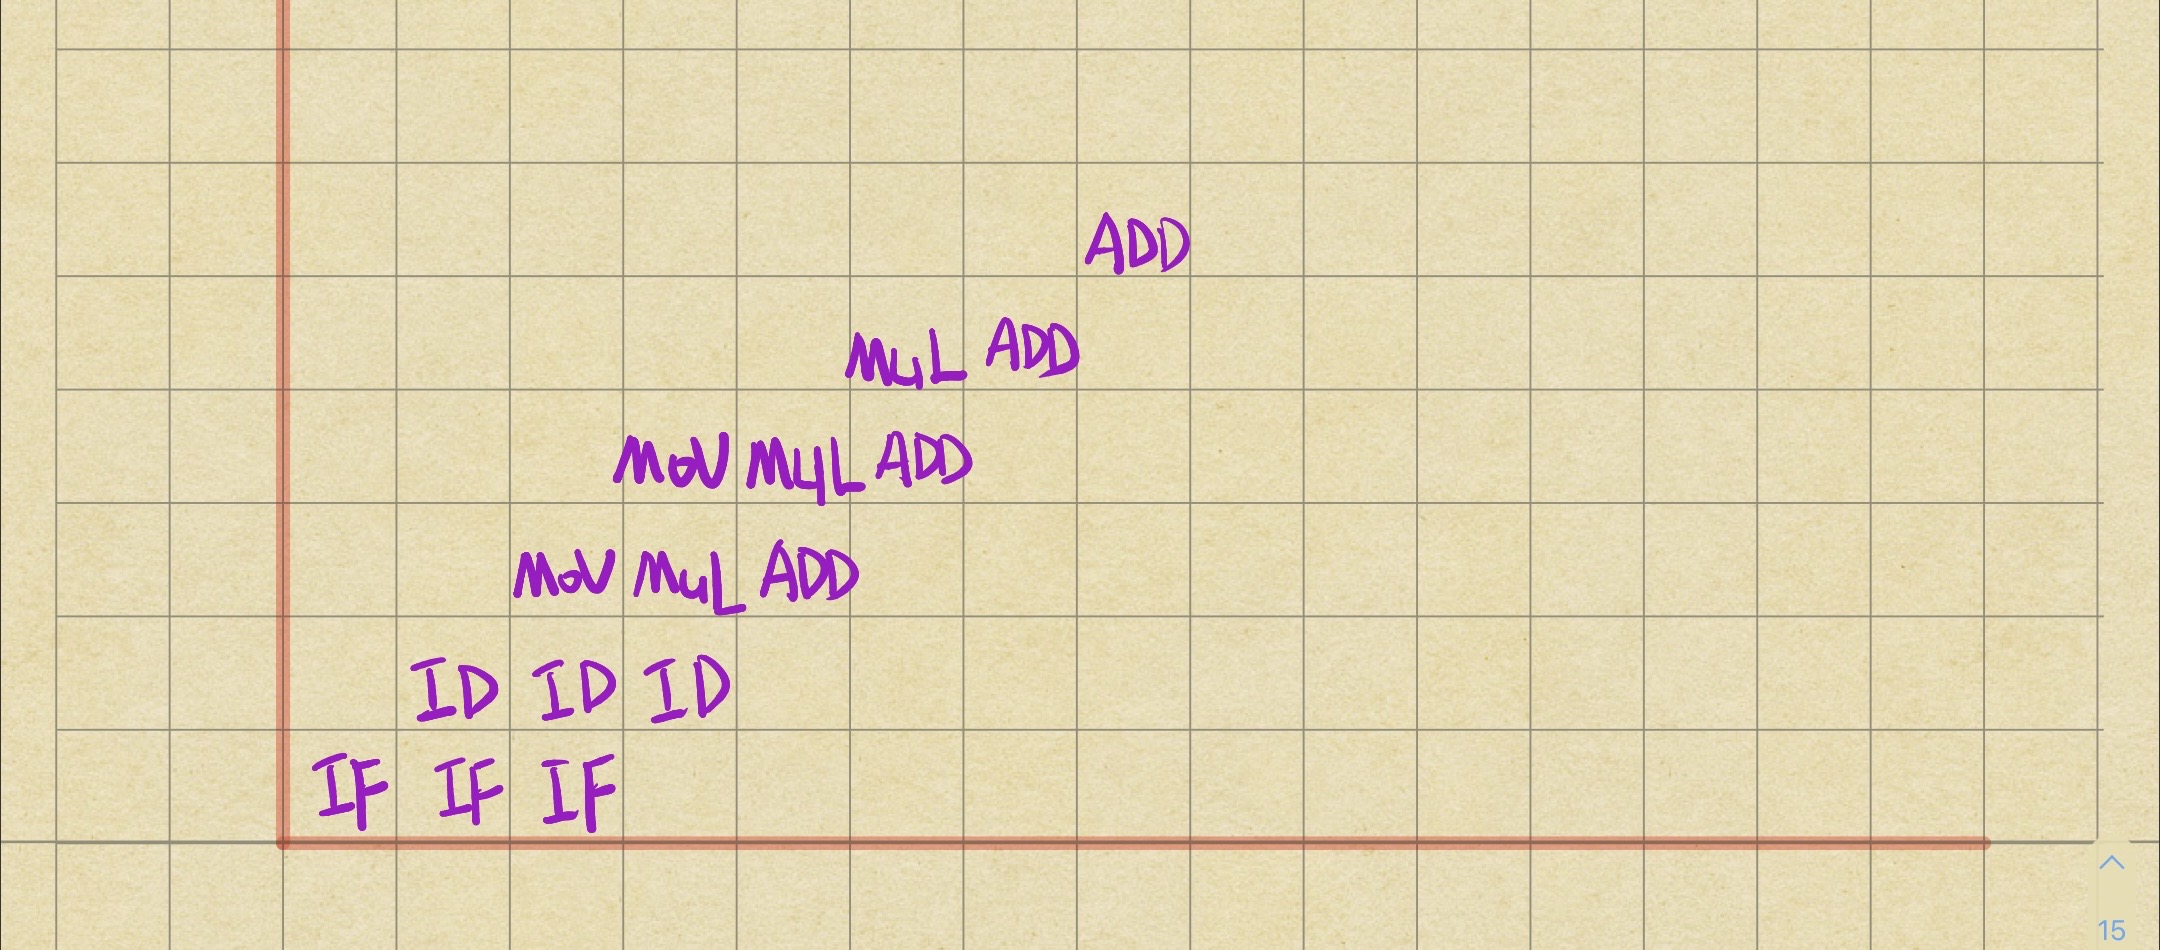 ADD
MUL ADD
MOV MUL ADD
MOV MUL ADD
ID ID ID
IF IF IF
15